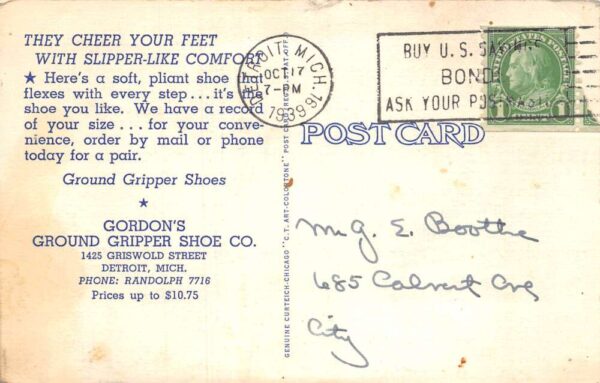 THEY CHEER YOUR FEET
WITH SLIPPER-LIKE COMFORT
★ Here's a soft, pliant shoe that
flexes with every step...it's the
shoe you like. We have a record
of your size... for your conve-
nience, order by mail or phone
today for a pair.
Ground Gripper Shoes
★
GORDON'S
GROUND GRIPPER SHOE CO.
1425 GRISWOLD STREET
DETROIT, MICH.
PHONE: RANDOLPH 7716
Prices up to $10.75
GENUINE CURTEICH-CHICAGO "C.T. ART-COLORTONE" POST CARD (REG. U.S. PAT. OFF.)
DETROIT, MICH. 16
OCT 17
7-PM
1939
BUY U.S. SAVINGS
BONDS
ASK YOUR POSTMASTER
UNITED STATES POSTAGE
FRANKLIN
1 1
POST CARD
Mr G. E. Boothe
685 Calvert Ave
City